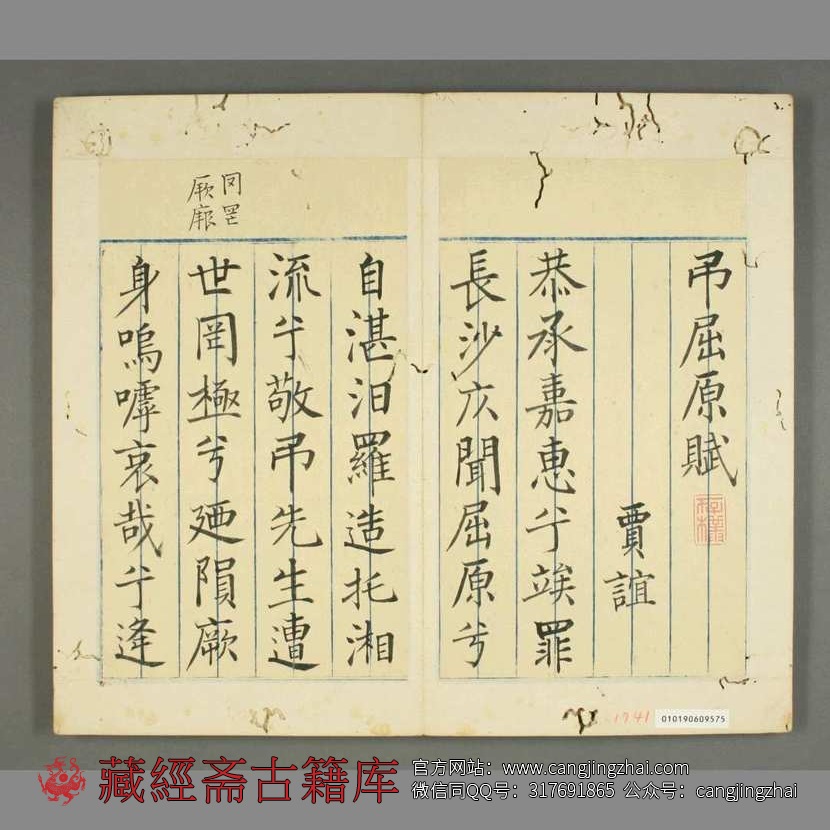 弔屈原賦
賈誼
恭承嘉惠兮竢罪
長沙仄聞屈原兮
自湛汨羅造托湘
流兮敬弔先生遭
世罔極兮廼隕厥
身嗚嘑哀哉兮逢
1741
010190609575
藏經斋古籍库
官方网站：www.cangjingzhai.com
微信同QQ号：317691865 公众号：cangjingzhai